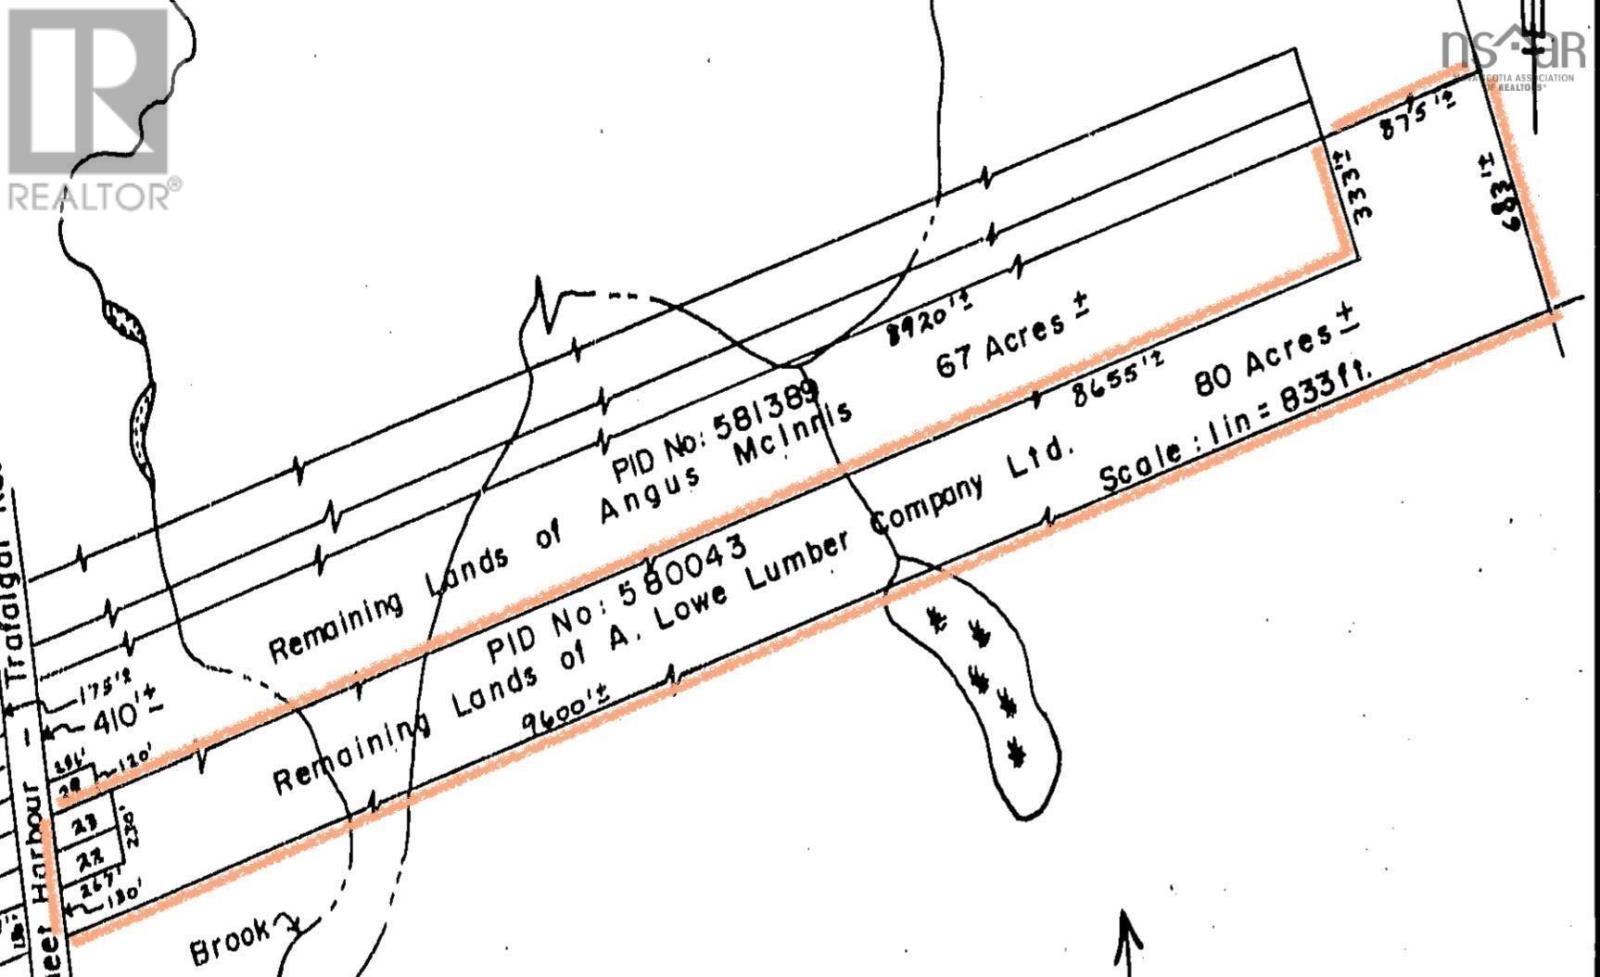 REALTOR®
nsar
NOVA SCOTIA ASSOCIATION
OF REALTORS®
875'±
333'±
683'±
8920'±
67 Acres ±
PID No: 581389
Remaining Lands of Angus McInnis
8655'±
80 Acres ±
PID No: 580043
Remaining Lands of A. Lowe Lumber Company Ltd.
Scale : 1in = 833ft.
9600'±
175'±
410'±
120'
29
23
230'
22
267'
130'
Trafalgar
Harbour
Brook